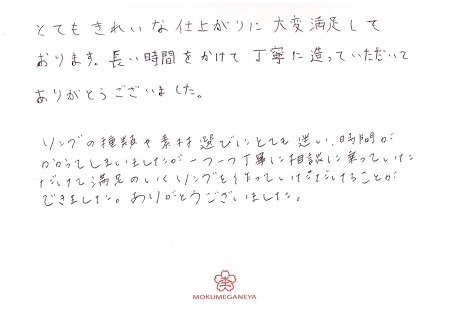 とてもきれいな仕上がりに大変満足して
おります。長い時間をかけて丁寧に造っていただいて
ありがとうございました。
リングの種類や素材選びにとても迷い、時間が
かかってしまいましたが一つ一つ丁寧に相談に乗っていた
だけて満足のいくリングを作っていただけることが
できました。ありがとうございました。
MOKUMEGANEYA